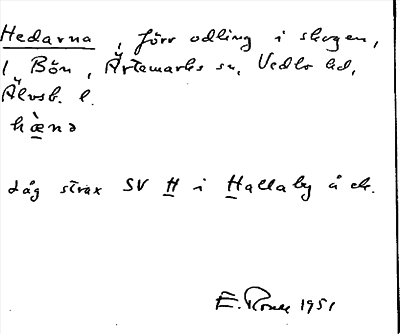 Hedarna, förr odling i skogen,
1 Bön, Ärtemarks sn, Vedbo hd,
Älvsb. l.
hæ̀nə
Låg strax SV H i Hallaby å ek.
E. 1951